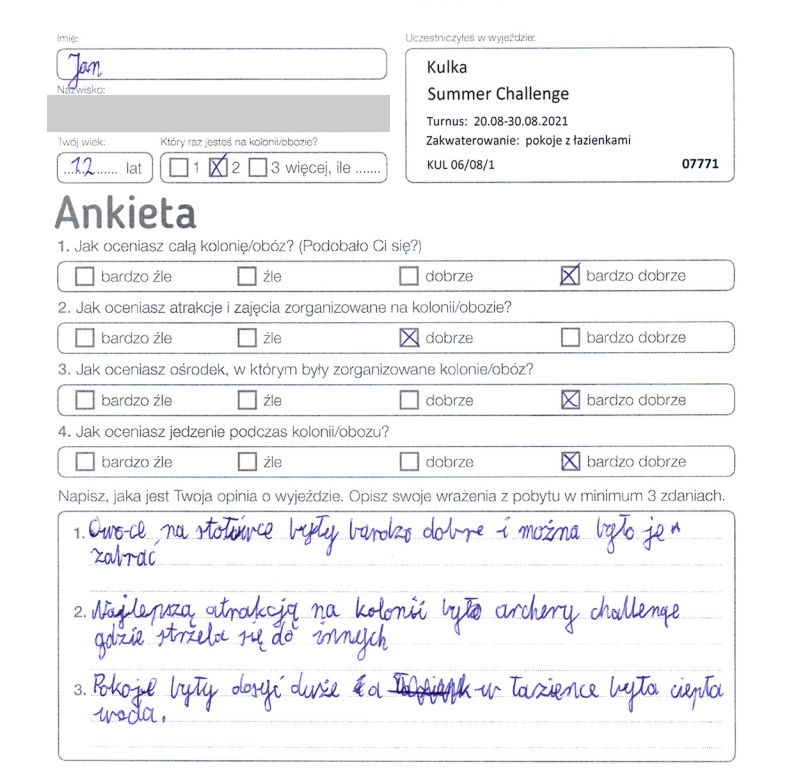 Imię:
Jan
Nazwisko:
Twój wiek:
12 lat
Który raz jesteś na kolonii/obozie?
1 2 3 więcej, ile .......
Uczestniczyłeś w wyjeździe:
Kulka
Summer Challenge
Turnus: 20.08-30.08.2021
Zakwaterowanie: pokoje z łazienkami
KUL 06/08/1 07771
Ankieta
1. Jak oceniasz całą kolonię/obóz? (Podobało Ci się?)
bardzo źle źle dobrze bardzo dobrze
2. Jak oceniasz atrakcje i zajęcia zorganizowane na kolonii/obozie?
bardzo źle źle dobrze bardzo dobrze
3. Jak oceniasz ośrodek, w którym były zorganizowane kolonie/obóz?
bardzo źle źle dobrze bardzo dobrze
4. Jak oceniasz jedzenie podczas kolonii/obozu?
bardzo źle źle dobrze bardzo dobrze
Napisz, jaka jest Twoja opinia o wyjeździe. Opisz swoje wrażenia z pobytu w minimum 3 zdaniach.
1. Owoce na stołówce były bardzo dobre i można było je
zabrać
2. Najlepszą atrakcją na kolonii było archery challenge
gdzie strzela się do innych
3. Pokoje były dosyć duże a w łazience była ciepła
woda.